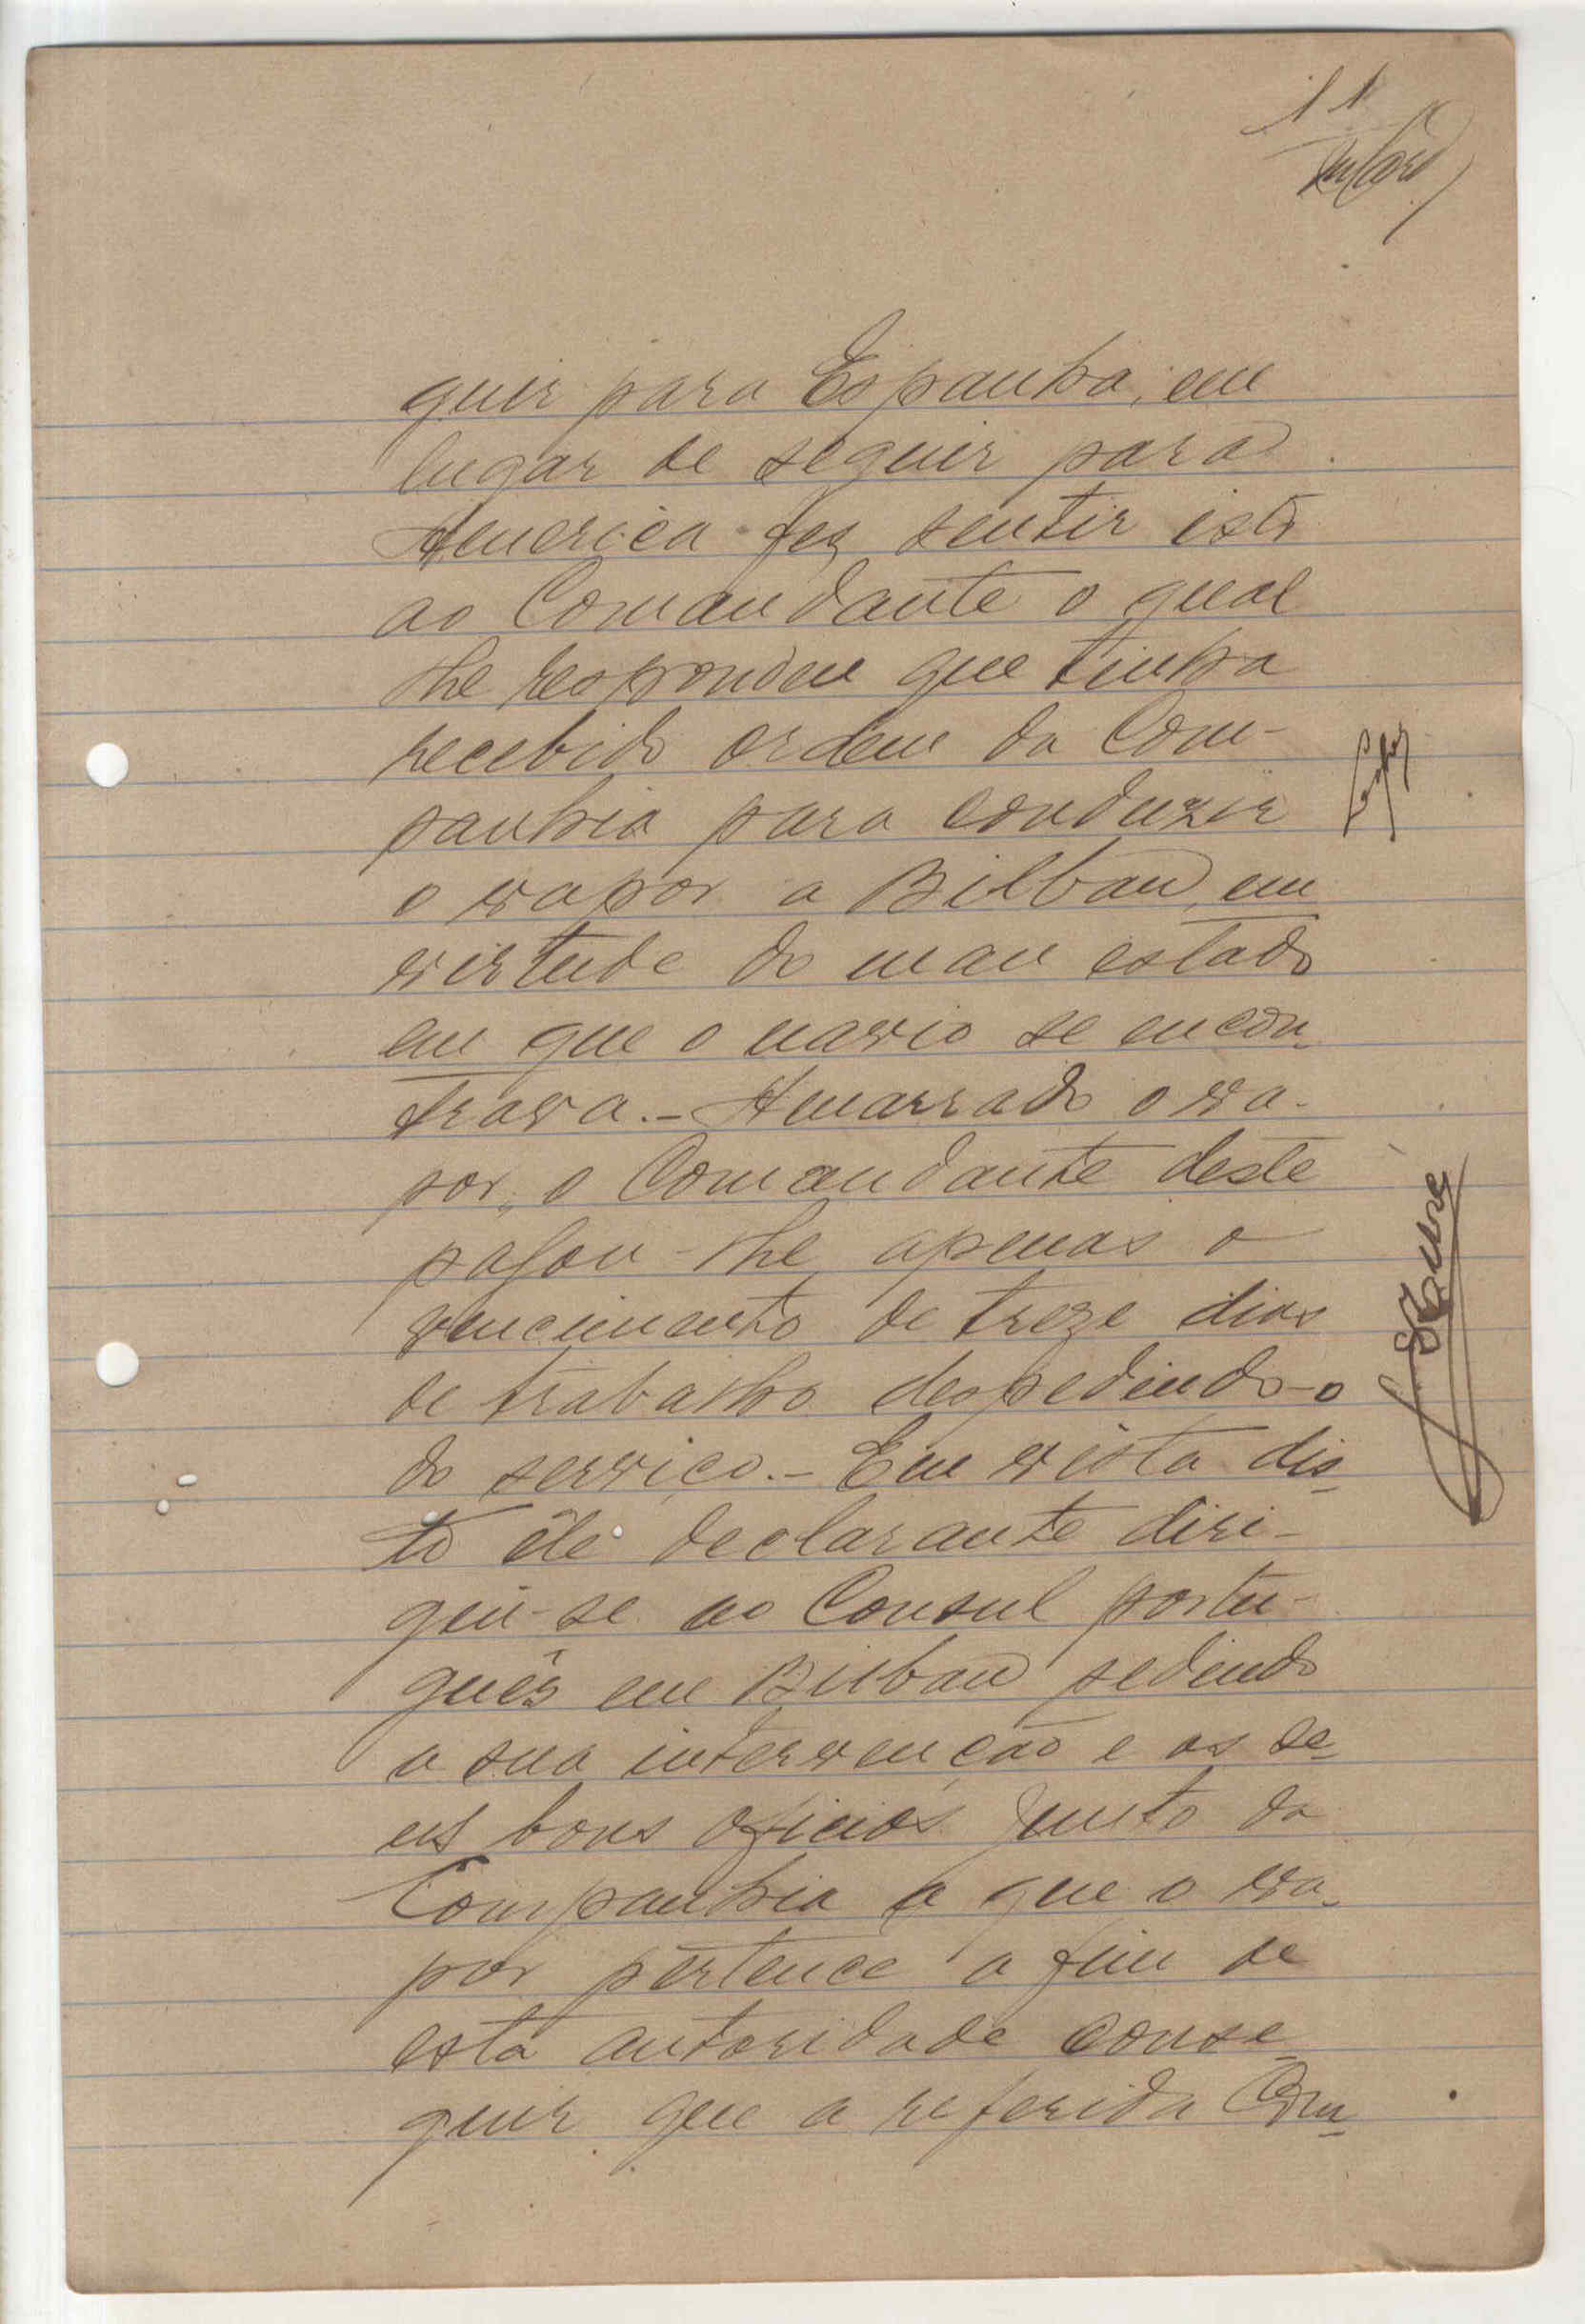 11
quir para Espanha, em
lugar de seguir para
America fez sentir isto
ao Comandante o qual
lhe respondeu que tinha
recebido ordem da Com-
panhia para conduzir
o vapor a Bilbau, em
virtude do mau estado
em que o navio se encon-
trava.- Amarrado o va-
por, o Comandante deste
pagou-lhe apenas o
vencimento de treze dias
de trabalho despedindo-o
do serviço.- Em vista dis-
to êle declarante diri-
giu-se ao Consul portu-
guês em Bilbau pedindo
a sua intervenção e os se-
us bons oficios junto da
Companhia a que o va-
por pertence a fim de
esta autoridade conse-
guir que a referida Com-